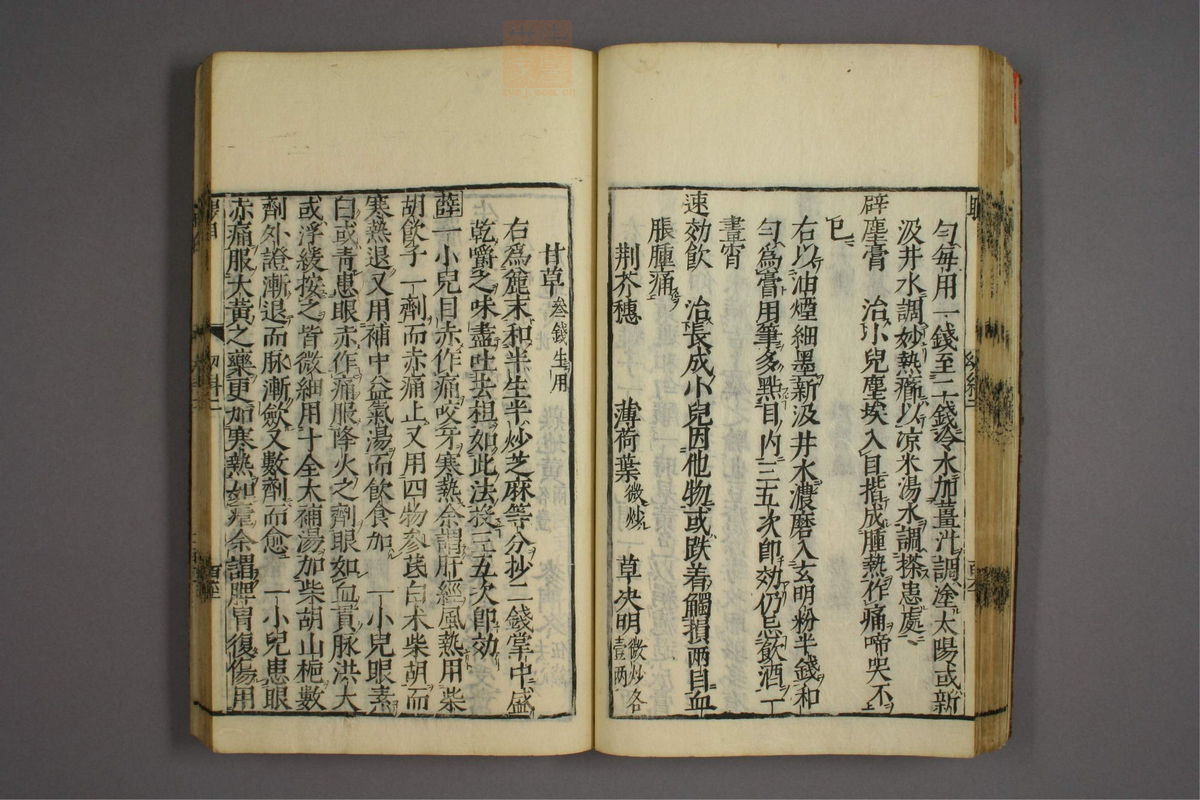 勻毎用一錢至二錢冷水加薑汁調塗太陽或新
汲井水調妙熱癤以凉米湯水調搽患處
辟塵膏　治小兒塵埃入目揩成腫熱作痛啼哭不
已
右以油煙細墨新汲井水濃磨入玄明粉半錢和
勻爲膏用筆多點目内三五次卽効仍忌飲酒一
晝宵
速効飲　治長成小兒因他物或跌着觸損兩目血
脹腫痛
荆芥穗　薄荷葉微炒　草决明微炒各壹兩
甘草叁錢生用
右爲麄末和半生半炒芝麻等分抄二錢掌中盛
乾嚼之味盡吐去柤如此法投三五次卽効
薛一小兒目赤作痛咬牙寒熱余謂肝經風熱用柴
胡飲子一劑而赤痛止又用四物參芪白术柴胡而
寒熱退又用補中益氣湯而飲食加　一小兒眼素
白或青患眼赤作痛服降火之劑眼如血貫脉洪大
或浮緩按之皆微細用十全大補湯加柴胡山梔數
劑外證漸退而脉漸歛又數劑而愈　一小兒患眼
赤痛服大黄之藥更加寒熱如瘧余謂脾胃復傷用